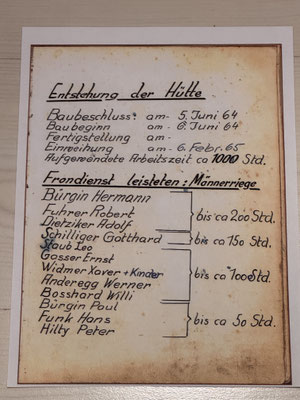 Entstehung der Hütte
Baubeschluss: am - 5. Juni 64
Baubeginn am - 6. Juni 64
Fertigstellung am -
Einweihung am - 6. Febr. 65
Aufgewendete Arbeitszeit ca 1000 Std.
Frondienst leisteten: Männerriege
Bürgin Hermann
Fuhrer Robert bis ca 200 Std.
Dietziker Adolf
Schilliger Gotthard bis ca 150 Std.
Staub Leo
Gasser Ernst
Widmer Xaver + Kinder bis ca 100 Std.
Anderegg Werner
Bosshard Willi
Bürgin Paul
Funk Hans bis ca 50 Std.
Hilty Peter